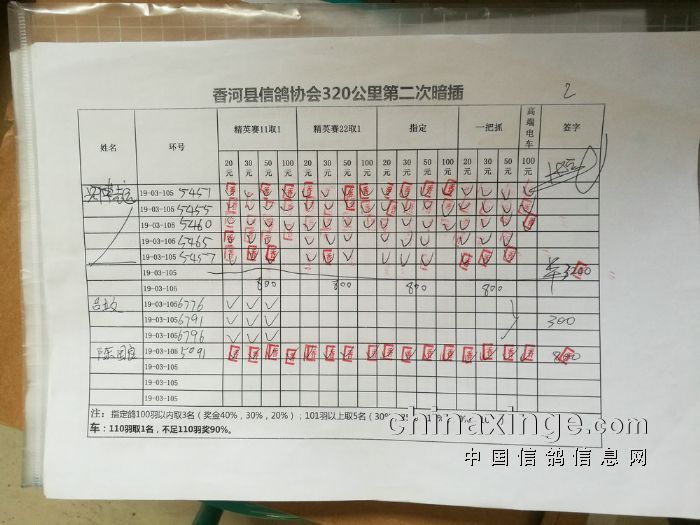 香河县信鸽协会320公里第二次暗插
2
姓名 环号 精英赛11取1 精英赛22取1 指定 一把抓 高端电车 签字
20元 30元 50元 100元 20元 30元 50元 100元 20元 30元 50元 100元 20元 30元 50元 100元
19-03-105 5451
19-03-105 5455
19-03-105 5460
19-03-105 5465
19-03-105 5457
19-03-105 3200
19-03-105 800 800 800 800
19-03-105 6776
19-03-105 6791 300
19-03-105 6796
19-03-105 5091
19-03-105
19-03-105
19-03-105
注：指定鸽100羽以内取3名（奖金40%，30%，20%）；101羽以上取5名（30%
车：110羽取1名，不足110羽奖90%。
chinaxinge.com
中国信鸽信息网